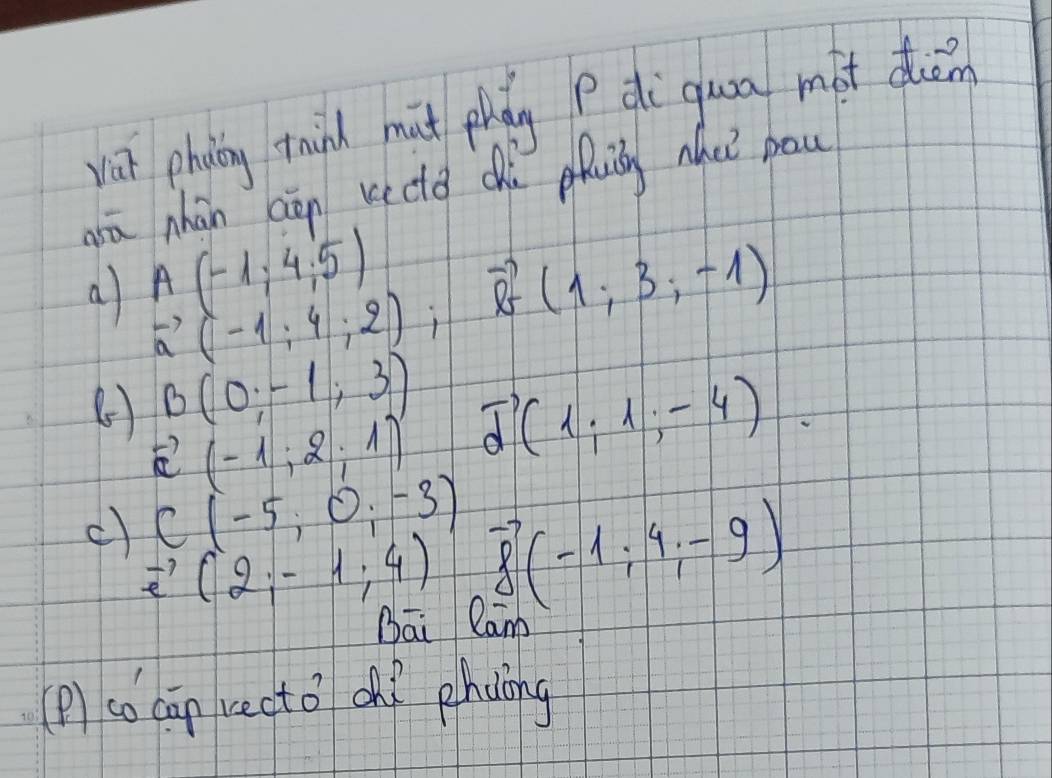 Viết phương trình mặt phẳng P đi qua một điểm
và nhận cặp vectơ chỉ phương như sau
a) A (-1; 4; 5)
a⃗ (-1; 4; 2); b⃗ (1; 3; -1)
b) B (0; -1; 3)
c⃗ (-1; 2; 1) d⃗ (1; 1; -4).
c) C (-5; 0; -3)
e⃗ (2; -1; 4) f⃗ (-1; 4; -9)
Bài làm
(P) có cặp vectơ chỉ phương